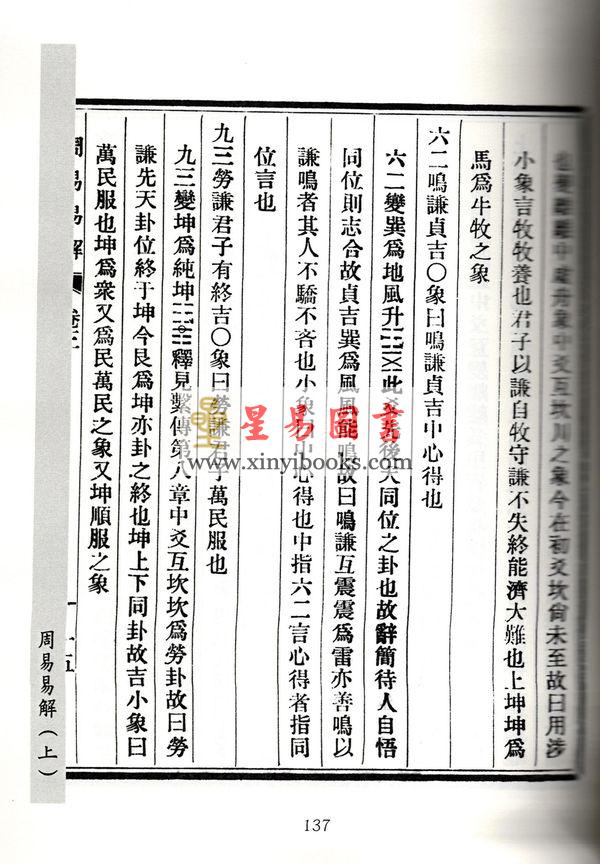 也變離離中虛舟象中爻互坎川之象今在初爻坎尙未至故曰用涉
小象言牧牧養也君子以謙自牧守謙不失終能濟大難也上坤坤爲
馬爲牛牧之象
六二鳴謙貞吉○象曰鳴謙貞吉中心得也
六二變巽爲地風升此爻先後天同位之卦也故辭簡待人自悟
同位則志合故貞吉巽爲風風能鳴故曰鳴謙互震震爲雷亦善鳴以
謙鳴者其人不驕不吝也小象曰中心得也中指六二言心得者指同
位言也
九三勞謙君子有終吉○象曰勞謙君子萬民服也
九三變坤爲純坤釋見繫傳第八章中爻互坎坎爲勞卦故曰勞
謙先天卦位終于坤今艮爲坤亦卦之終也坤上下同卦故吉小象曰
萬民服也坤爲衆又爲民萬民之象又坤順服之象
周易易解 卷三 十五
周易易解（上）
137
星易圖書
www.xinyibooks.com